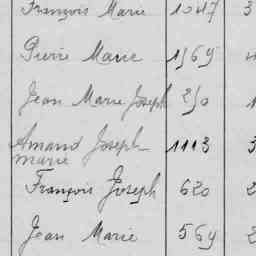 François Marie 1047 3
Pierre Marie 1569
Jean Marie Joseph 250 1
Amand Joseph 1113 3
marie
François Joseph 620 2
Jean Marie 569 2